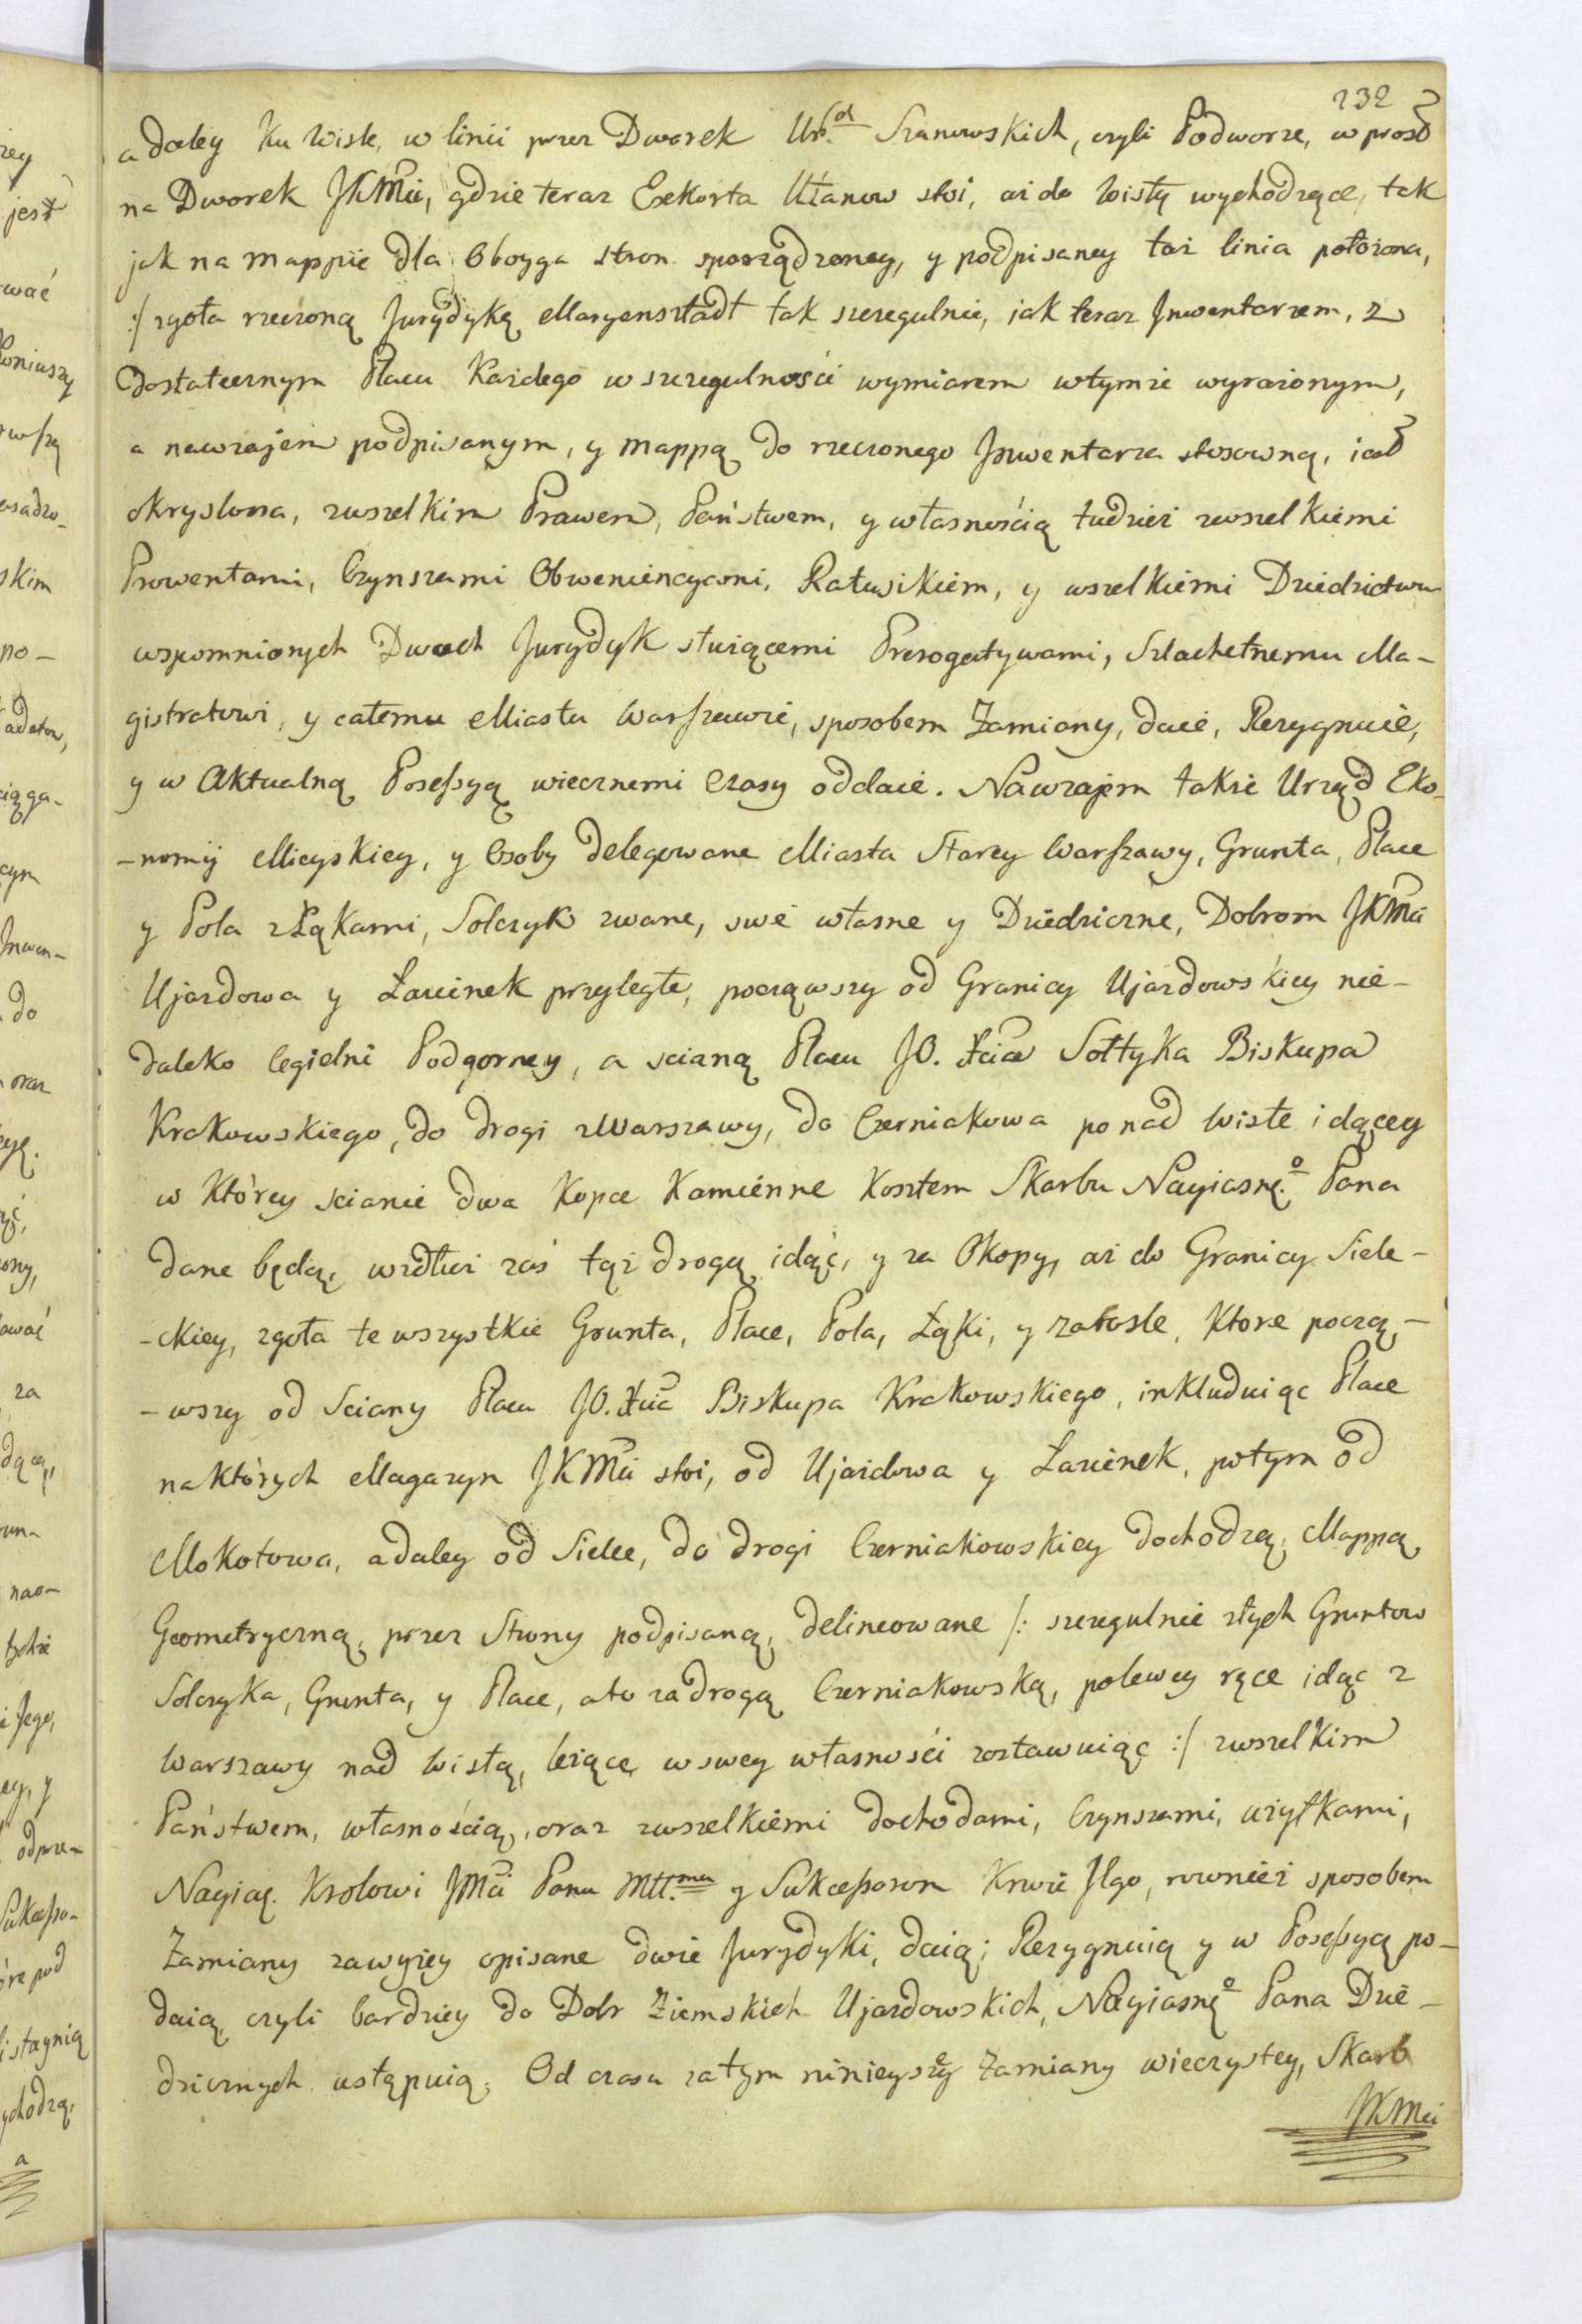 232
a daley ku Wiśle, w linii przez Dworek Ur.ch Szanowskich, czyli Podworze, w prost
na Dworek JKMci, gdzie teraz Exkorta Ułanow stoi, aż do Wisły wychodzące, tak
jak na mappie dla Oboyga stron sporządzoney, y podpisaney taż linia położona,
:/ zgoła rzeczoną Jurydykę Maryensztadt tak szczegulnie, jak teraz Jnwentarzem, z
dostatecznym Placu Każdego w szczegulności wymiarem w tymże wyrażonym,
a nawzajem podpisanym, y mappą do rzeczonego Jnwentarza stosowną, iest
okryslona, z wszelkim Prawem, Państwem, y własnością tudzież z wszelkiemi
Prowentami, Czynszami Obwencyami, Ratusikiem, y wszelkiemi Dziedzictwu
wspomnionych Dwoch Jurydyk służącemi Prerogatywami, Szlachetnemu Ma-
gistratowi, y całemu Miastu Warszawie, sposobem Zamiany, daie, Rezygnuie,
y w Aktualną Possessyą wiecznemi Czasy oddaie. Nawzajem także Urząd Eko-
-nomij Mieyskiey, y Osoby delegowane Miasta Starey Warszawy, Grunta, Place
y Pola z Łąkami, Solczyk zwane, swe własne y Dziedziczne, Dobrom JKMci
Ujazdowa y Łazienek przyległe, począwszy od Granicy Ujazdowskiey nie-
daleko Cegielni Podgorney, a scianą Placu JO. Xcia Sołtyka Biskupa
Krakowskiego, do drogi z Warszawy, do Czerniakowa po nad Wisłę idącey
w Którey scianie dwa Kopce Kamienne Kosztem Skarbu Nayiasnę.o Pana
dane będą, wzdłuż zaś tąż drogą idąć, y za Okopy, aż do Granicy Siele-
-ckiey, zgoła te wszystkie Grunta, Place, Pola, Łąki, y zarosle, Ktore począ,-
-wszy od Sciany Placu JO. Xcia Biskupa Krakowskiego, inkluduiąc Place
na których Magazyn JKMci stoi, od Ujazdowa y Łazienek, potym od
Mokotowa, a daley od Sielec, do drogi Czerniakowskiey dochodzą, Mappą
Geometryczną, przez Strony podpisaną, delineowane /: szczegulnie z tych Gruntow
Solczyka, Grunta, y Place, a to za drogą Czerniakowską, po lewey ręce idąc z
Warszawy nad Wisłą, leżące, w swey własności zostawuiąc :/ z wszelkim
Państwem, własnością, oraz z wszelkiemi dochodami, Czynszami, użytkami,
Nayiaś. Krolowi JMci Panu Mił.mu y Sukcessorom Krwie Jego, rownież sposobem
Zamiany za wyżey opisane dwie Jurydyki, daią; Rezygnuią y w Possessyą po-
daią, czyli bardziey do Dobr Ziemskich Ujazdowskich, Nayiasnę.o Pana Dzie-
dzicznych ustępuią. Od czasu zatym ninieyszey Zamiany wieczystey, Skarb
JKMci